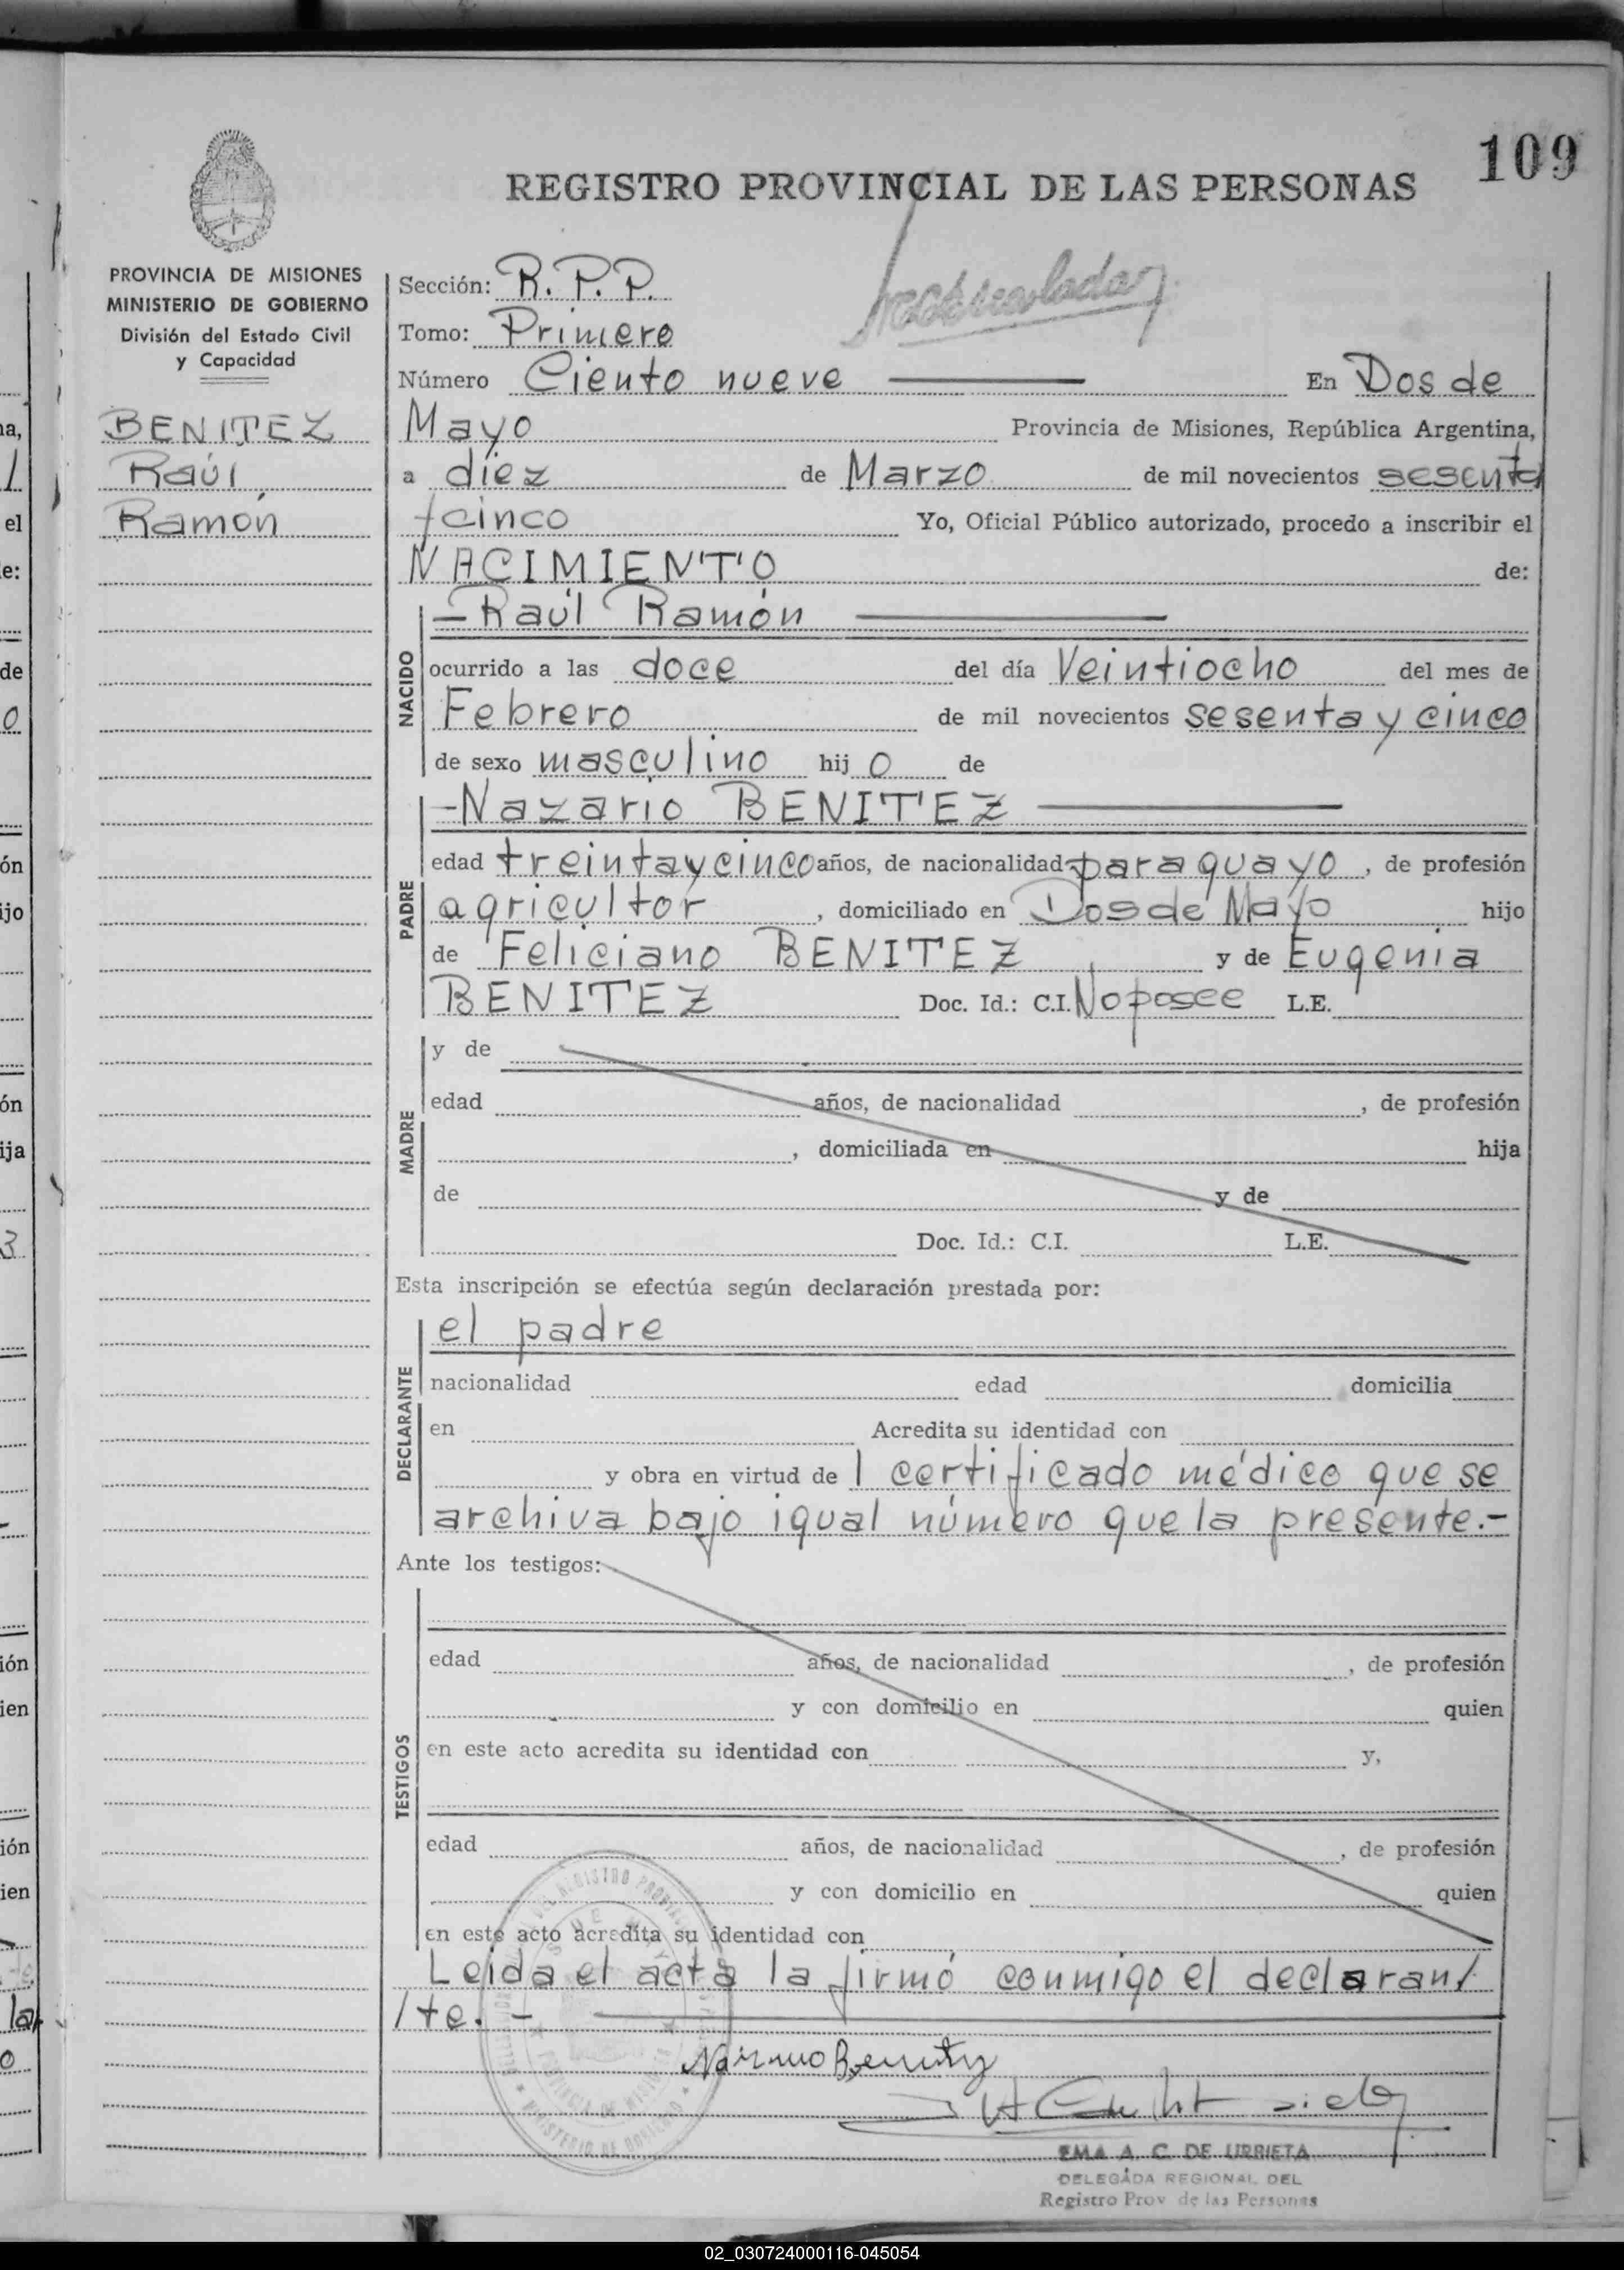 109
REGISTRO PROVINCIAL DE LAS PERSONAS
PROVINCIA DE MISIONES
MINISTERIO DE GOBIERNO
División del Estado Civil
y Capacidad
BENITEZ
Raúl
Ramón
Sección: R. P. P.
Tomo: Primero
Número Ciento nueve En Dos de
Mayo Provincia de Misiones, República Argentina,
a diez de Marzo de mil novecientos sesenta
y cinco Yo, Oficial Público autorizado, procedo a inscribir el
NACIMIENTO de:
NACIDO
- Raúl Ramón
ocurrido a las doce del día Veintiocho del mes de
Febrero de mil novecientos sesenta y cinco
de sexo masculino hij o de
PADRE
- Nazario BENITEZ
edad treinta y cinco años, de nacionalidad paraguayo, de profesión
agricultor, domiciliado en Dos de Mayo hijo
de Feliciano BENITEZ y de Eugenia
BENITEZ Doc. Id.: C.I. No posee L.E.
MADRE
y de
edad años, de nacionalidad , de profesión
, domiciliada en hija
de y de
Doc. Id.: C.I. L.E.
Esta inscripción se efectúa según declaración prestada por:
DECLARANTE
el padre
nacionalidad edad domicilia
en Acredita su identidad con
y obra en virtud de 1 certificado médico que se
archiva bajo igual número que la presente.-
Ante los testigos:
TESTIGOS
edad años, de nacionalidad , de profesión
y con domicilio en quien
en este acto acredita su identidad con y,
edad años, de nacionalidad , de profesión
y con domicilio en quien
en este acto acredita su identidad con
Leida el acta la firmó conmigo el declaran/
/te. -
EMA A. C. DE URRIETA
DELEGADA REGIONAL DEL
Registro Prov de las Personas
02_030724000116-045054